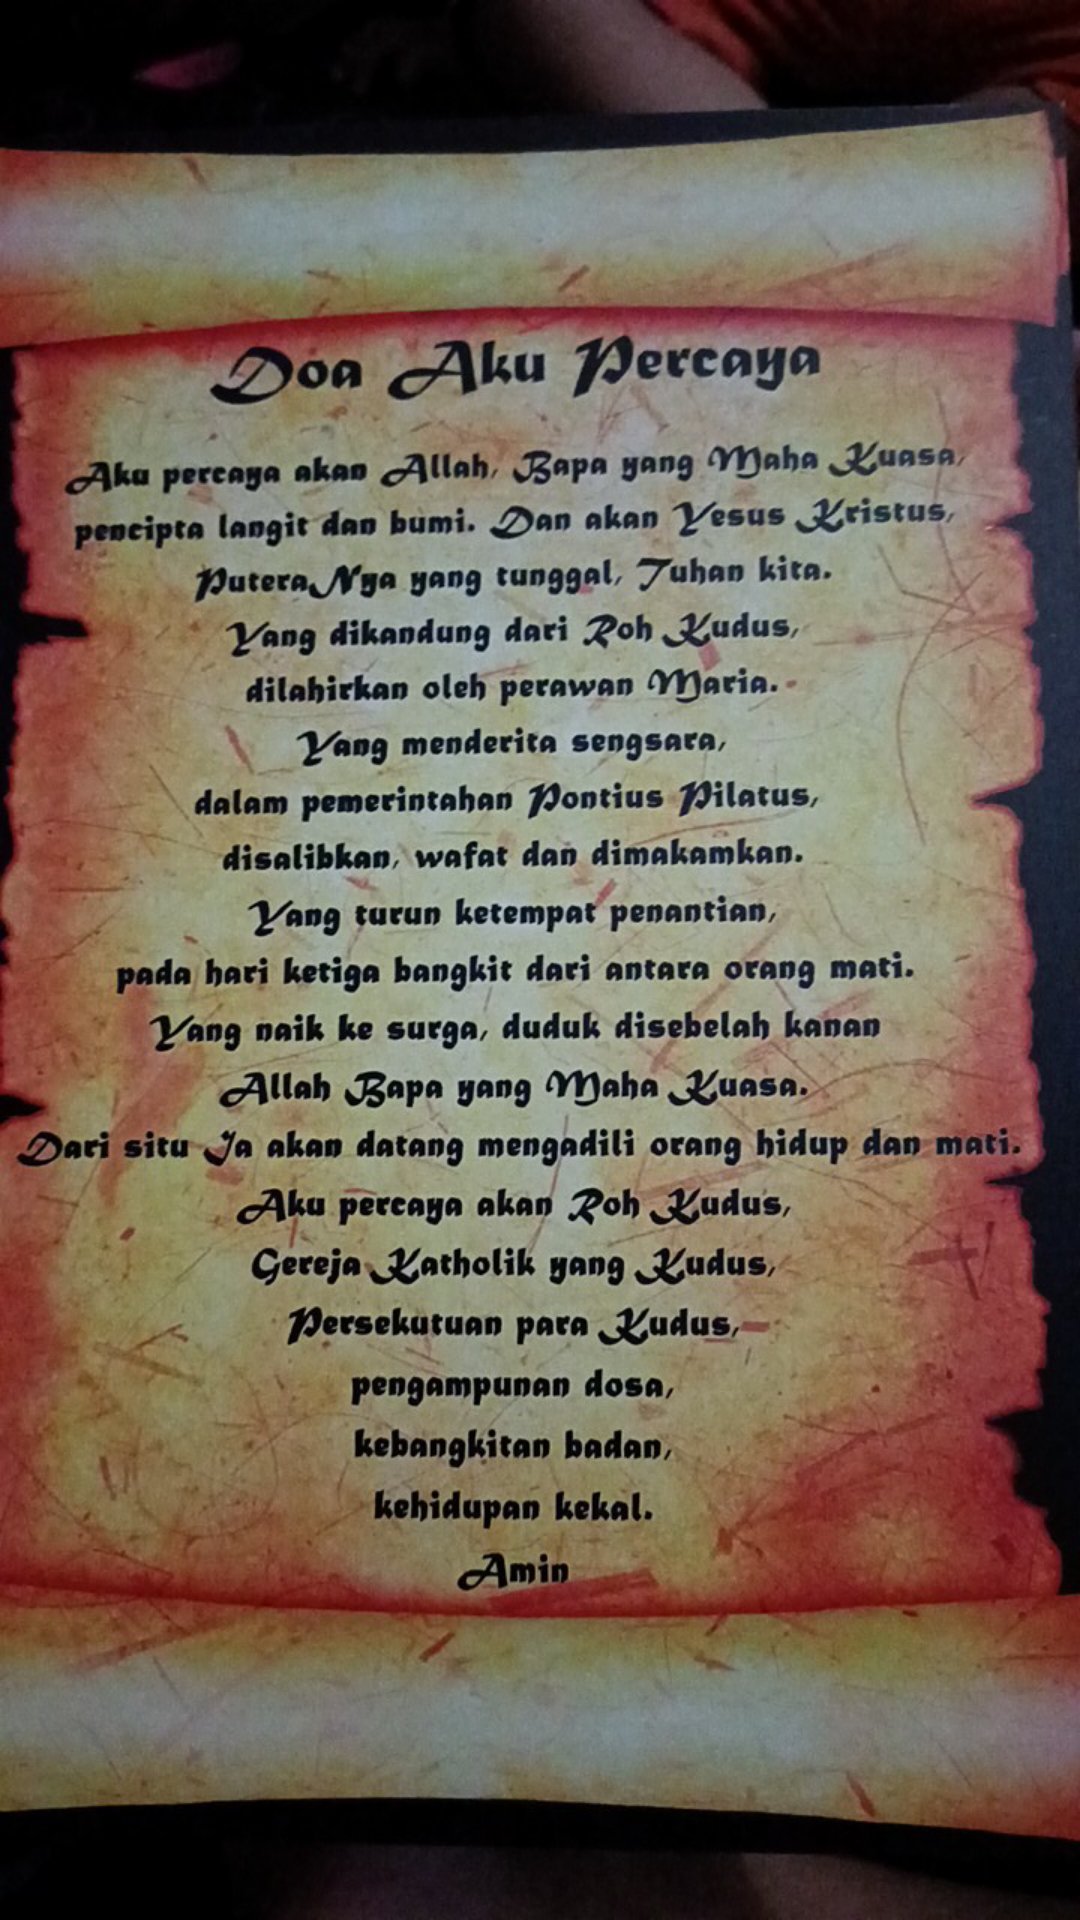 Doa Aku Percaya
Aku percaya akan Allah, Bapa yang Maha Kuasa,
pencipta langit dan bumi. Dan akan Yesus Kristus,
PuteraNya yang tunggal, Tuhan kita.
Yang dikandung dari Roh Kudus,
dilahirkan oleh perawan Maria.
Yang menderita sengsara,
dalam pemerintahan Pontius Pilatus,
disalibkan, wafat dan dimakamkan.
Yang turun ketempat penantian,
pada hari ketiga bangkit dari antara orang mati.
Yang naik ke surga, duduk disebelah kanan
Allah Bapa yang Maha Kuasa.
Dari situ Ia akan datang mengadili orang hidup dan mati.
Aku percaya akan Roh Kudus,
Gereja Katholik yang Kudus,
Persekutuan para Kudus,
pengampunan dosa,
kebangkitan badan,
kehidupan kekal.
Amin